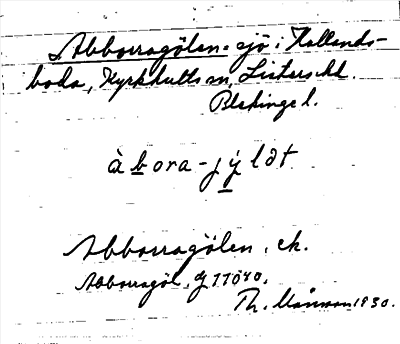 Abborragölen. sjö i Hallands-
boda, Kyrkhults sn, Listers hd.
Blekinge l.
àbora-jýlǝt
Abborragölen, ek.
Abborragöl, GJ 11040.
Th. Månsson 1930.